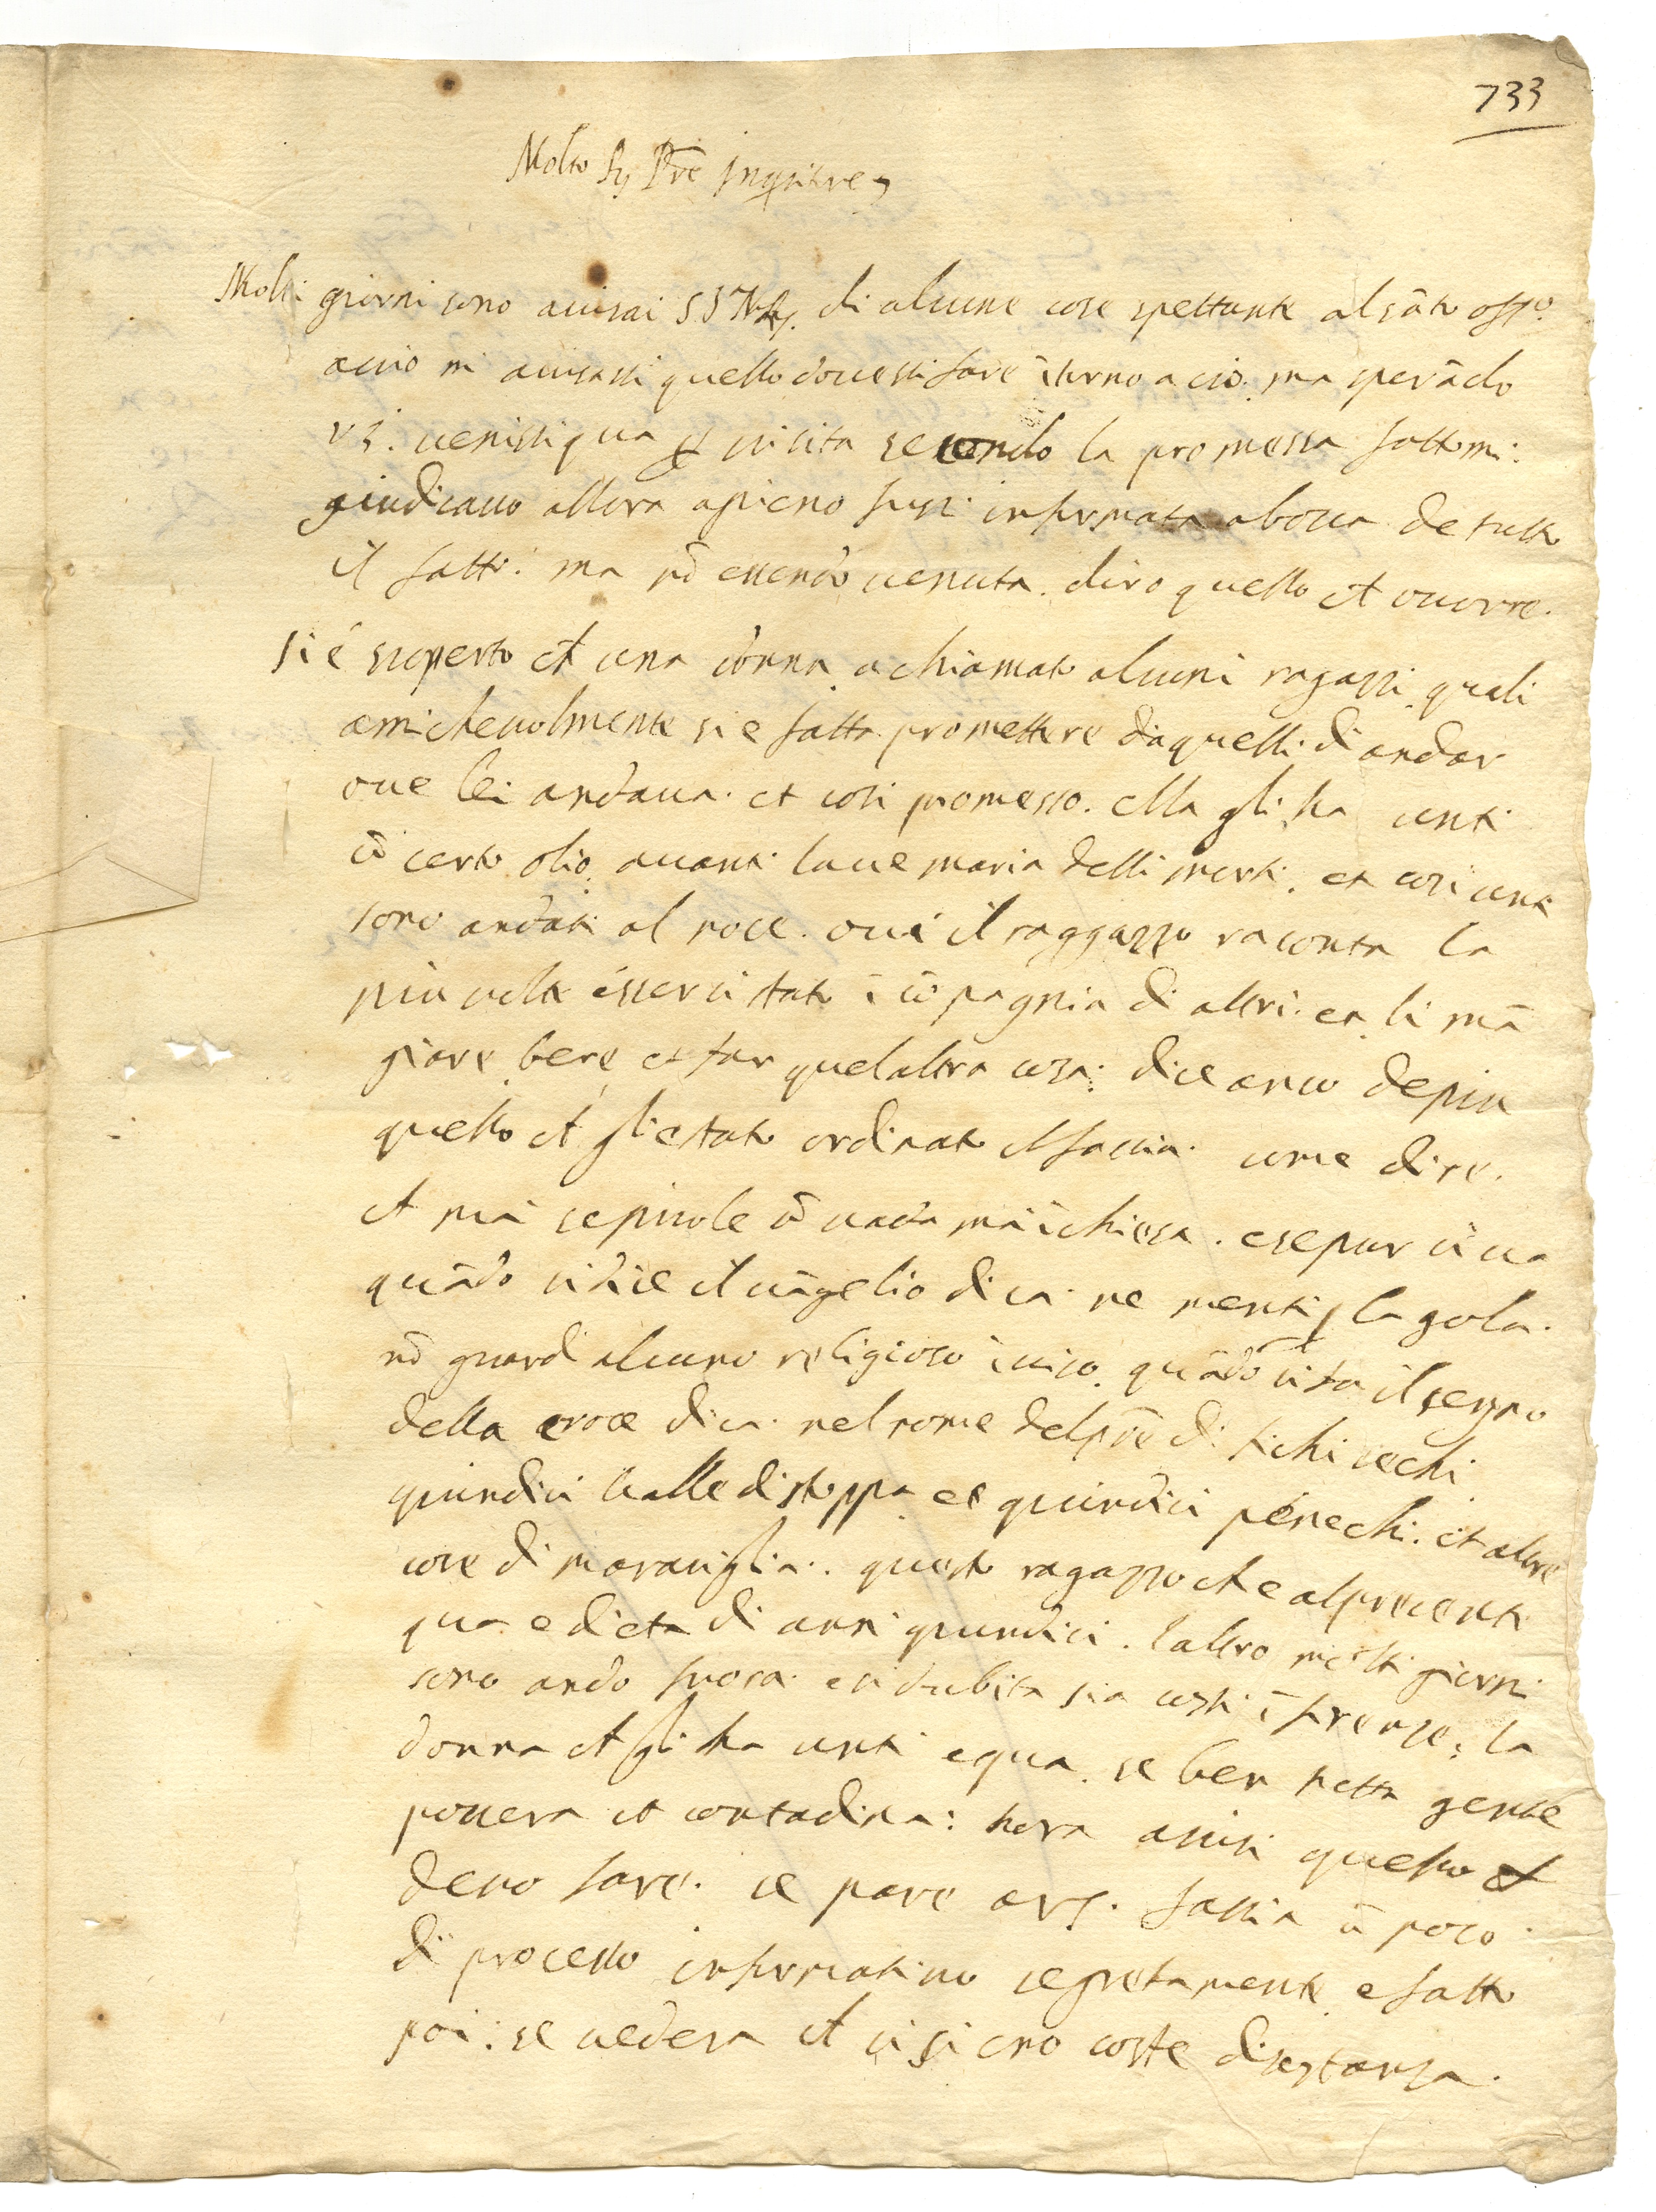 733
Molto Rx Pre Inqsitre
Molti giorni sono auisai di alcune cose spettante al sāto offo.
acciò mi auisassi quello douessi fare ītorno a cio. ma sperādo
v s. uenissi qua ꝑ uisita secondo la promessa fattomi.
giudicauo allora apieno fussi informata a bocca de tutto
il fatto: ma nō essendo uenuta. diro quello ch ocorre.
si é scoperto ch una donna a chiamato alcuni ragazzi quali
amicheuolmente si e fatta promettere da quelli di andar
oue lei andaua. et cosi promesso. ella gli ha unti
cō certo olio. auanti laue maria delli morti. et cosi unti
sono andati al noce. oui il raggazzo raconta la
piu uolte éssercu stato ī cōpagnia di altri. et li mā
giare bere et far quelaltra cosa: dice anco de piu
quello ch gli e stato ordinato ch faccia. come dire.
ch mai se puole nō uada mai ī chiesa. e se pur ci ua
quādo si dice il uāgelio dica. ne menti ꝑ la gola.
nō guardi alcuno religioso ī uiso. quādo si fa il segno
della croce dica. nel nome del pre di
quindici balle di stoppa et quindici penechi. et altre
cose di marauiglia. questo ragazzo ch e al presente
qua e di eta di anni quindici. laltro molti giorni
sono andò fuora. e si dubita sia costi ī firenze. la
donna ch gli ha unti e qua. se ben tutta gente
pouera et contadina: hora auisi quello ch
deuo fare. se pare a v s. faccia ū poco
di processo informatiuo segretamente e fatto
poi: se uedera ch ci si eno coste di sostanza.